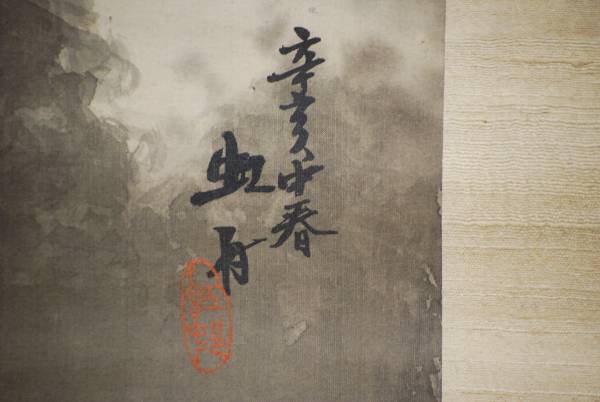 辛亥中春
虹舟